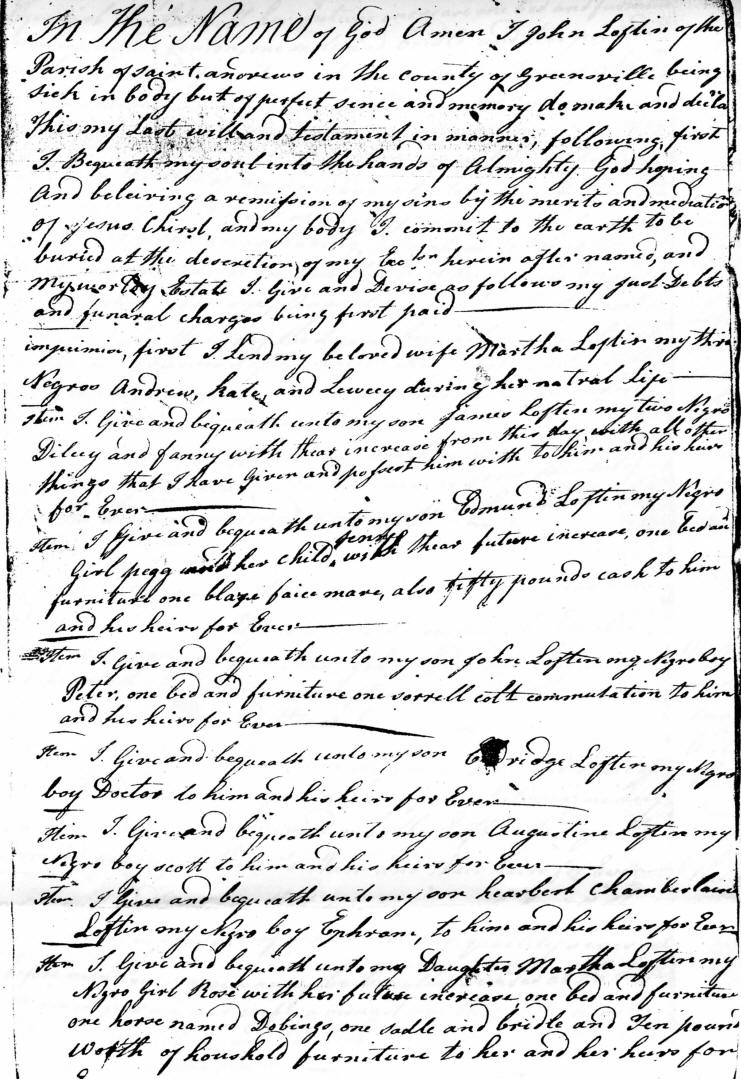 In The Name of God Amen I John Loftin of the
Parish of saint. andrews in the county of Greensville being
sick in body but of perfect sence and memory do make and decla
This my Last will and testament in manner, following, first
I. Bequeath my soul into the hands of Almighty God hoping
And beleiving a remission of my sins by the merits and mediation
of Jesus Christ, and my body I. commit to the earth to be
buried at the descretion, of my Exctn herein after named, and
My worldy Estate I. Give and Devise as follows my Just Debts
and funaral charges being first paid
imprimis, first I Lend my beloved wife Martha Loftin my thre
Negros Andrew, Kate, and Lewcey during her natral life
Item I. Give and bequeath unto my son James Loftin my two Negro
Dilcy and fanny with thear increase from this day with all other
things that I have Given and possest him with to him and his heirs
for Ever
Item I Give and bequeath unto my son Edmund Loftin my Negro
Girl pegg and her child Jenny with thear future increase, one bed and
furniture one blaze faice mare, also fifty pounds cash to him
and his heirs for Ever
Item I. Give and bequeath unto my son John Loftin my Negro boy
Peter, one bed and furniture one sorrell colt commutation to him
and his heirs for Ever
Item I. Give and bequeath unto my son Eldridge Loftin my Negro
boy Doctor to him and his heirs for Ever
Item I. Give and bequeath unto my son Augustine Loftin my
Negro boy scott to him and his heirs for Ever
Item I Give and bequeath unto my son hearbert Chamberlain
Loftin my Negro boy Ephram, to him and his heirs for Ever
Item I. Give and bequeath unto my Daughter Martha Loftin my
Negro Girl Rose with her future increase one bed and furniture
one horse named Dobings, one sadle and bridle and Ten pound
worth of houshold furniture to her and her heirs for